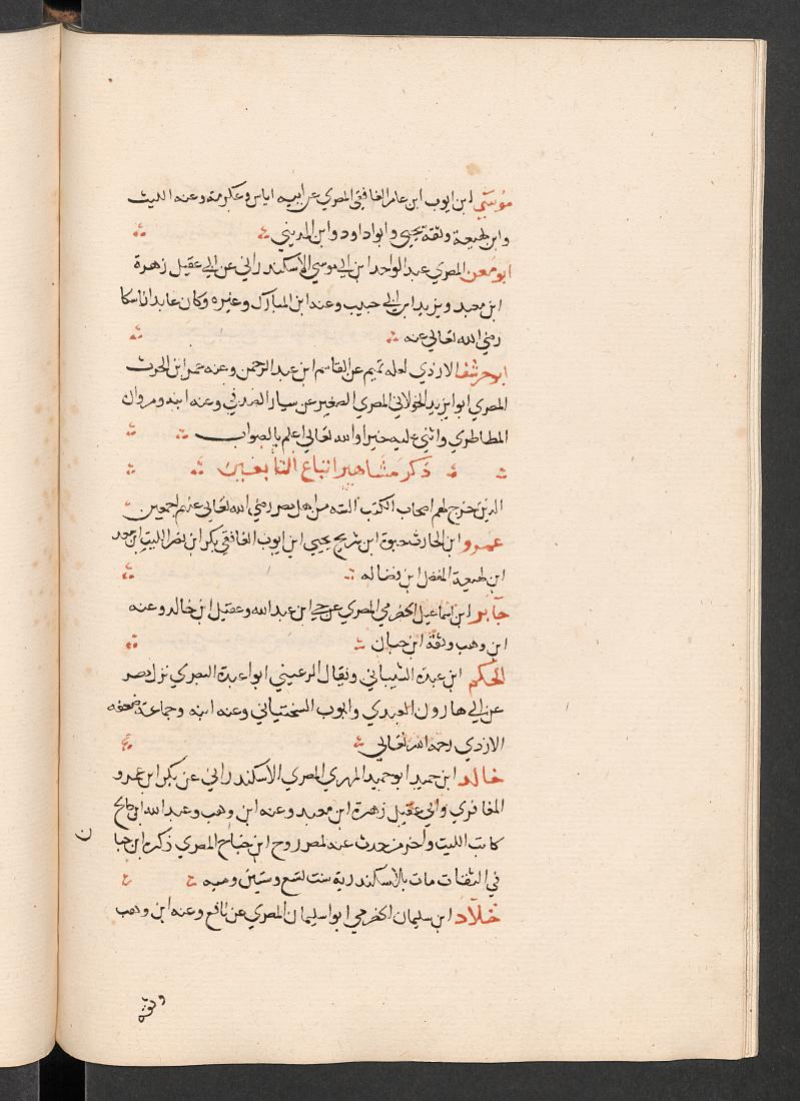 موسى ابن ايوب ابن عامر الغافقي المصري عن ابيه اياس وعكرمة وعنه الليث
وابن لهيعة وثقه يحيى وابوا داود وابن المديني
ابو معن المصري عبد الواحد ابن ابي موسى الاسكندراني عن ابي عقيل زهرة
ابن معبد ويزيد ابن ابي حبيب وعنه ابن المبارك وغيره وكان عابدا ناسكا
رضي الله تعالى عنه
ابو حرشف الازدي لعله تميم عن القاسم ابن عبد الرحمن وعنه عمر ابن الحرث
المصري ابوا يزيد الخولاني المصري الصغير عن سيار الصدفي وعنه ابنه ومروان
المطاطري واثنى عليه خيرا والله تعالى اعلم بالصواب
ذكر مشاهير اتباع التابعين
الذين خرج لهم اصحاب الكتب الستة من اهل مصر رضي الله تعالى عنهم اجمعين
عمرو ابن الحارث حيوة ابن شريح يحيى ابن ايوب الغافقي بكر ابن نضر الليث ابن سعد
ابن لهيعة المفضل ابن فضاله
جابر ابن اسماعيل الحضرمي المصري عن حيي ابن عبد الله وعقيل ابن خالد وعنه
ابن وهب وثقه ابن حبان
الحكم ابن عبدة الشيباني ويقال الرعيني ابوا عبدة البصري نزل مصر
عن ابي هارون العبدي وايوب السختياني وعنه ابنه وجماعة ضعفه
الازدي رحمه الله تعالى
خالد ابن حميد ابو حميد المهري المصري الاسكندراني عن بكر ابن عمرو
المغافري وابي عقيل زهرة ابن معبد وعنه ابن وهب وعبد الله ابن صالح
كاتب الليث واخر من حدث عنه لمصر روح ابن صلاح المصري ذكره ابن حبا
ن
في الثقات مات بالاسكندرية سنت تسع وستين ومية
خلاد ابن سليمان الحضرمي ابوا سليمان المصري عن نافع وعنه ابن وهب
وثقه